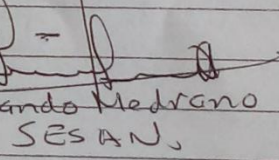 ando Medrano
SESAN,